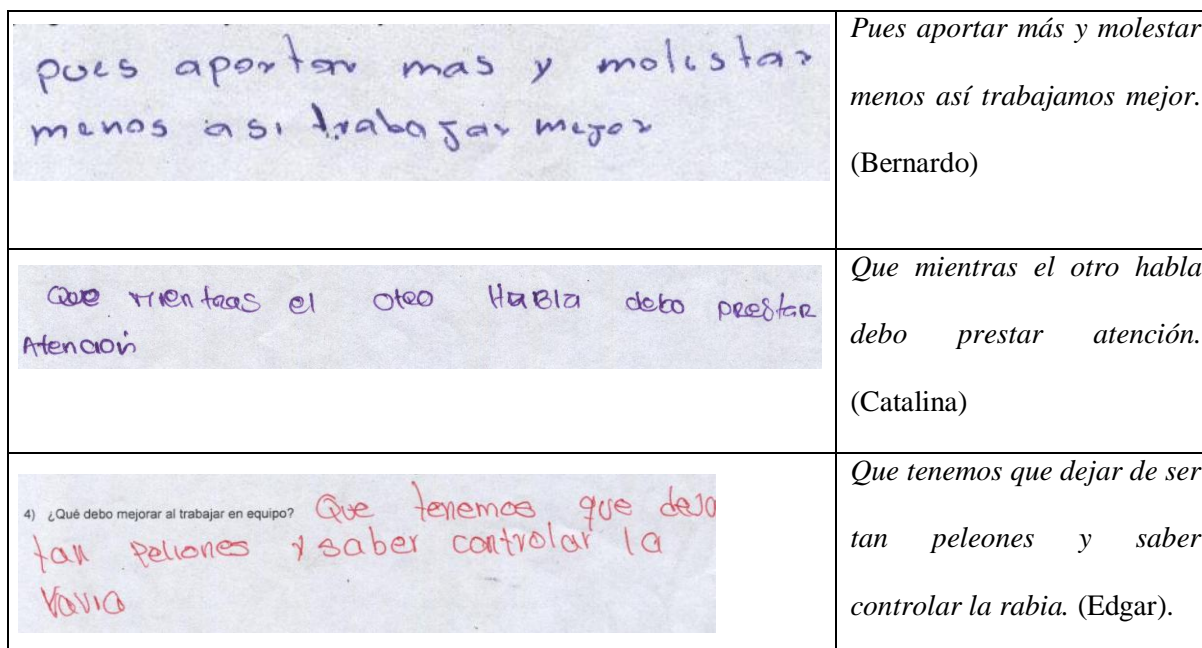 pues aportar mas y molestar
menos asi trabajar mejor
Pues aportar más y molestar
menos así trabajamos mejor.
(Bernardo)
Que mientras el otro Habla debo prestar
Atención
Que mientras el otro habla
debo prestar atención.
(Catalina)
4) ¿Qué debo mejorar al trabajar en equipo? Que tenemos que deja
tan peliones y saber controlar la
ravia
Que tenemos que dejar de ser
tan peleones y saber
controlar la rabia. (Edgar).